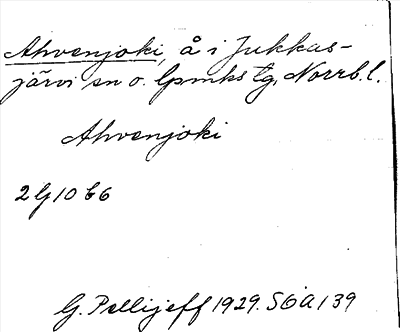 Ahvenjoki, å i Jukkas-
järvi sn o. lpmks tg, Norrb. l.
Ahvenjoki
2910 b6
G. Pellijeff 1929. SOA 139